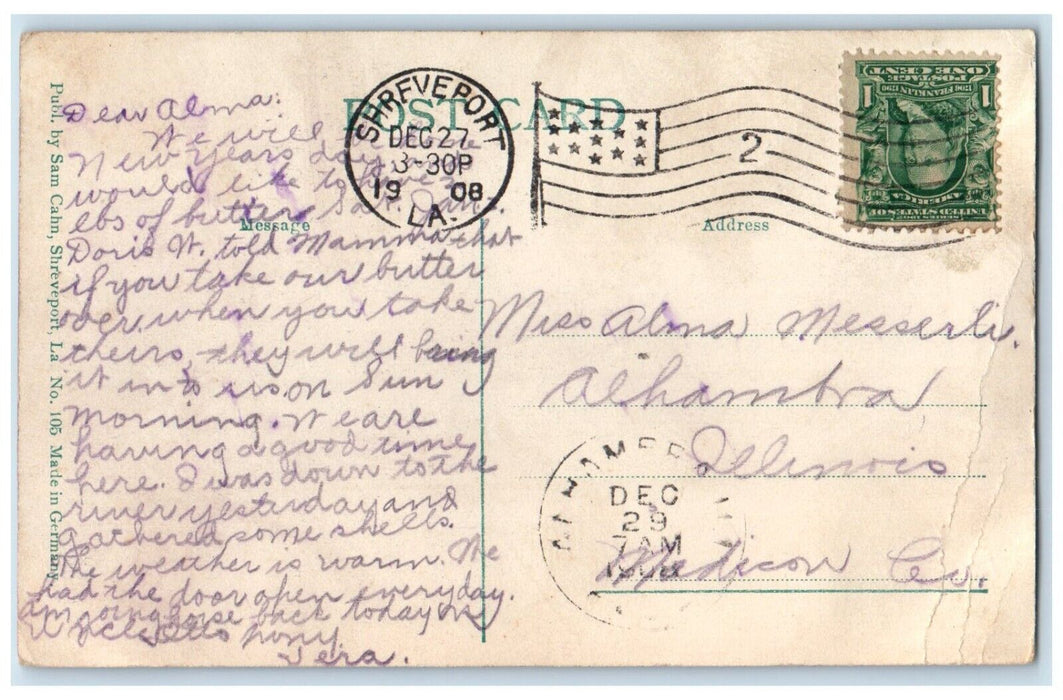 POST CARD
SHREVEPORT
DEC 27
3-30P
19 08
LA.
2
ONE CENT
POSTAGE
1706 FRANKLIN 1790
1 1
UNITED STATES OF AMERICA
SERIES 1902
Publ. by Sam Cahn, Shreveport, La No. 105 Made in Germany.
Message
Address
Dear Alma:
We will
New Years day
would like to
lbs of butter Sat. Jan.
Doris W. told Mamma that
if you take our butter
over when you take
theirs, they will bring
it in to us on Sun
morning. We are
having a good time
here. I was down to the
river yesterday and
gathered some shells.
The weather is warm. We
had the door open everyday.
Am going horse back today on
Uncle pony.
Vera.
Miss Alma Messerli.
Alhambra
Illinois
Madison Co.
ALHAMBRA
DEC
29
7AM
1908